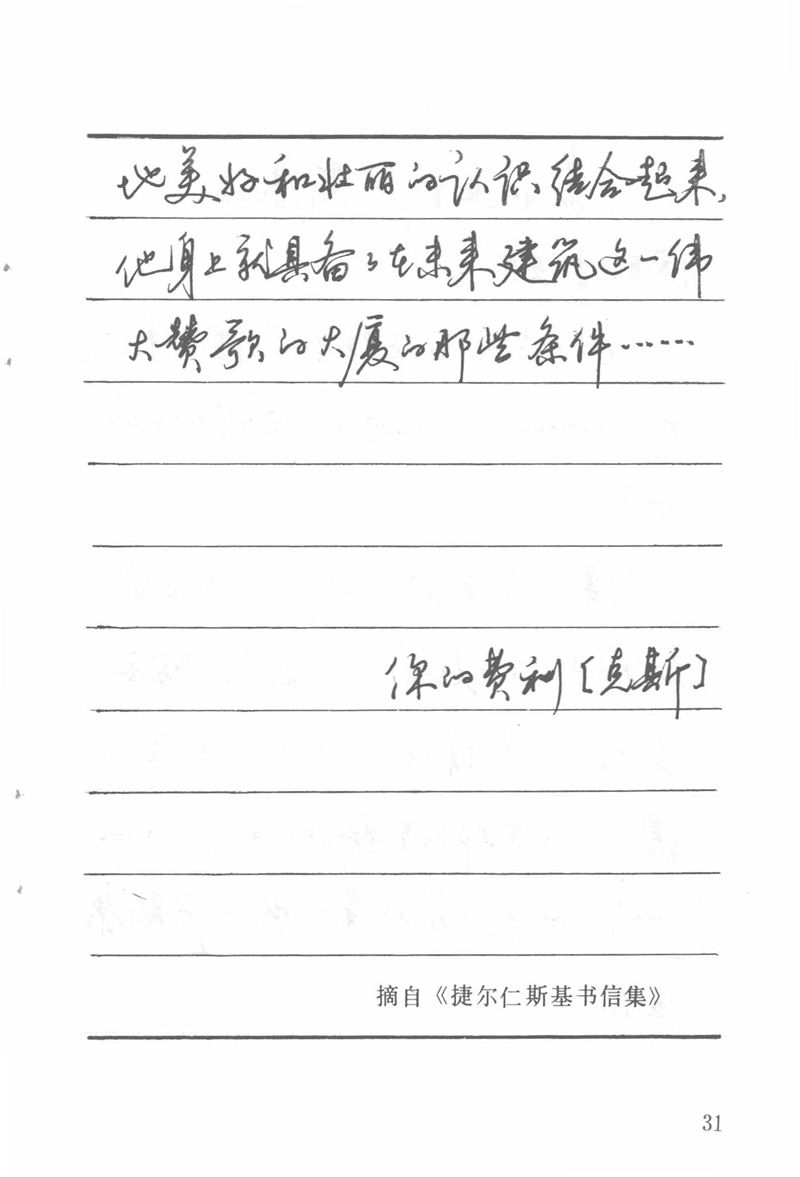 地美好和壮丽的认识结合起来，
他身上就具备了在未来建筑这一伟
大赞歌的大厦的那些条件……
你的费利〔克斯〕
摘自《捷尔仁斯基书信集》
31